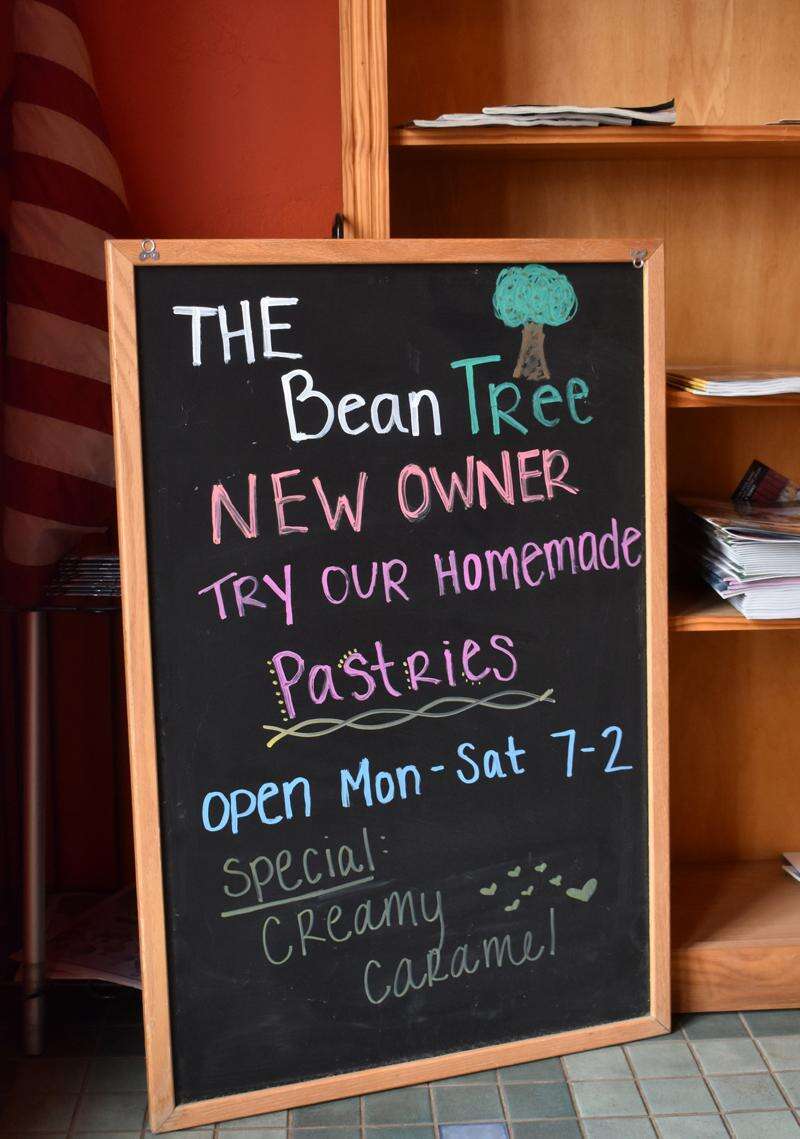 THE
Bean Tree
NEW OWNER
TRY OUR Homemade
Pastries
open Mon-Sat 7-2
special:
Creamy
Caramel